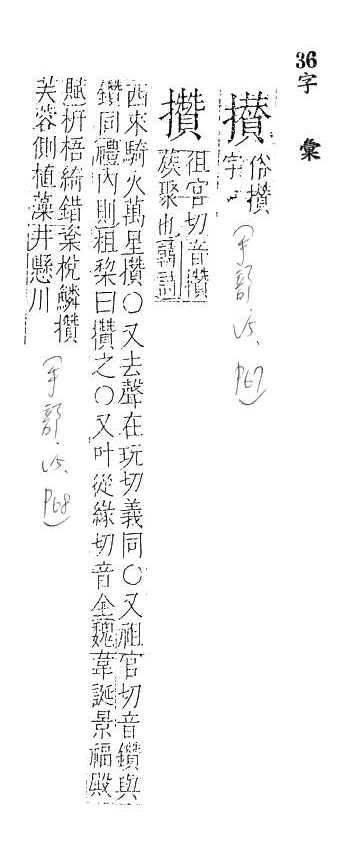 36字彙
攅俗攢
字
(手部.15.P67)
攢徂官切音欑
族聚也韓詩
西來騎火萬星攢〇又去聲在玩切義同〇又祖官切音鑽與
鑽同禮內則柤棃曰攢之〇又叶從緣切音全魏韋誕景福殿
賦枅梧綺錯楶梲鱗攢
芙蓉側植藻井懸川
(手部.15.P68)